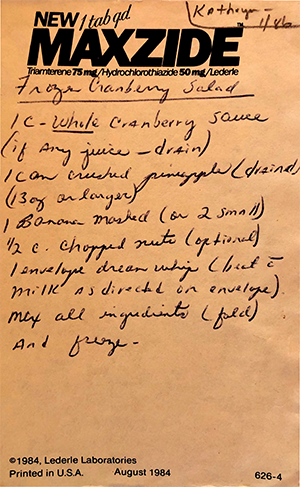 Kathryn
1/86
NEW 1 tab qd
MAXZIDE
Triamterene 75 mg/Hydrochlorothiazide 50 mg/Lederle
Frozen Cranberry Salad
1 C - Whole Cranberry Sauce
(if any juice - drain)
1 can crushed pineapple (drained)
(13oz or larger)
1 Banana mashed (or 2 small)
1/2 c. chopped nuts (optional)
1 envelope dream whip (beat c̄
milk as directed on envelope).
Mix all ingredients (fold)
And freeze -
©1984, Lederle Laboratories
Printed in U.S.A. August 1984 626-4